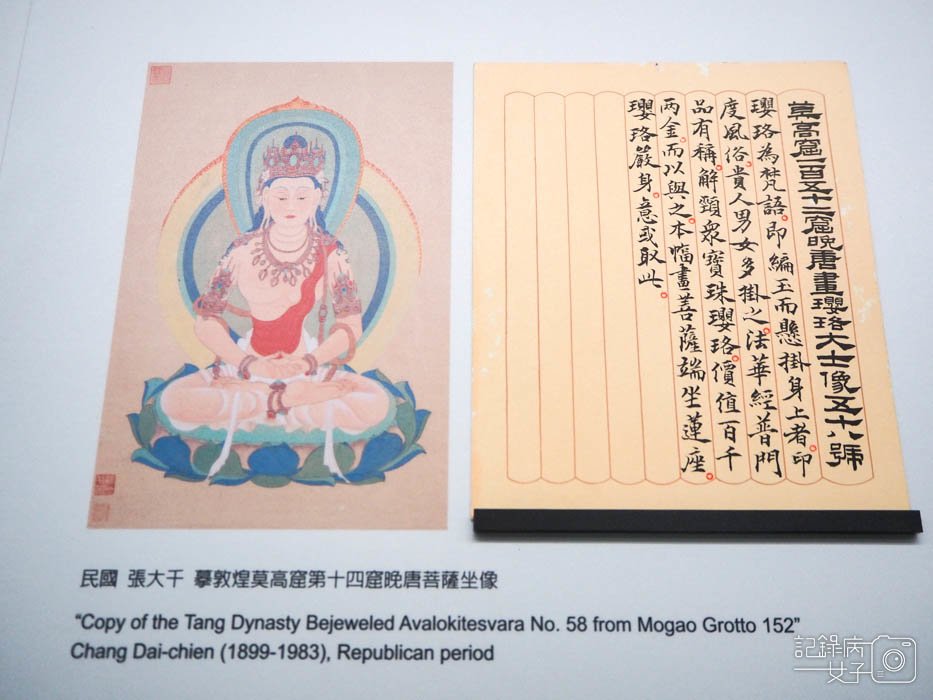 莫高窟一百五十二窟晚唐畫瓔珞大士像五十八號
瓔珞為梵語。即編玉而懸掛身上者。印
度風俗。貴人男女多掛之。法華經普門
品有稱。解頸眾寶珠瓔珞。價值百千
两金。而以與之。本幅畫菩薩端坐蓮座。
瓔珞嚴身。意或取此。
民國 張大千 摹敦煌莫高窟第十四窟晚唐菩薩坐像
“Copy of the Tang Dynasty Bejeweled Avalokitesvara No. 58 from Mogao Grotto 152”
Chang Dai-chien (1899-1983), Republican period
記錄病
女子